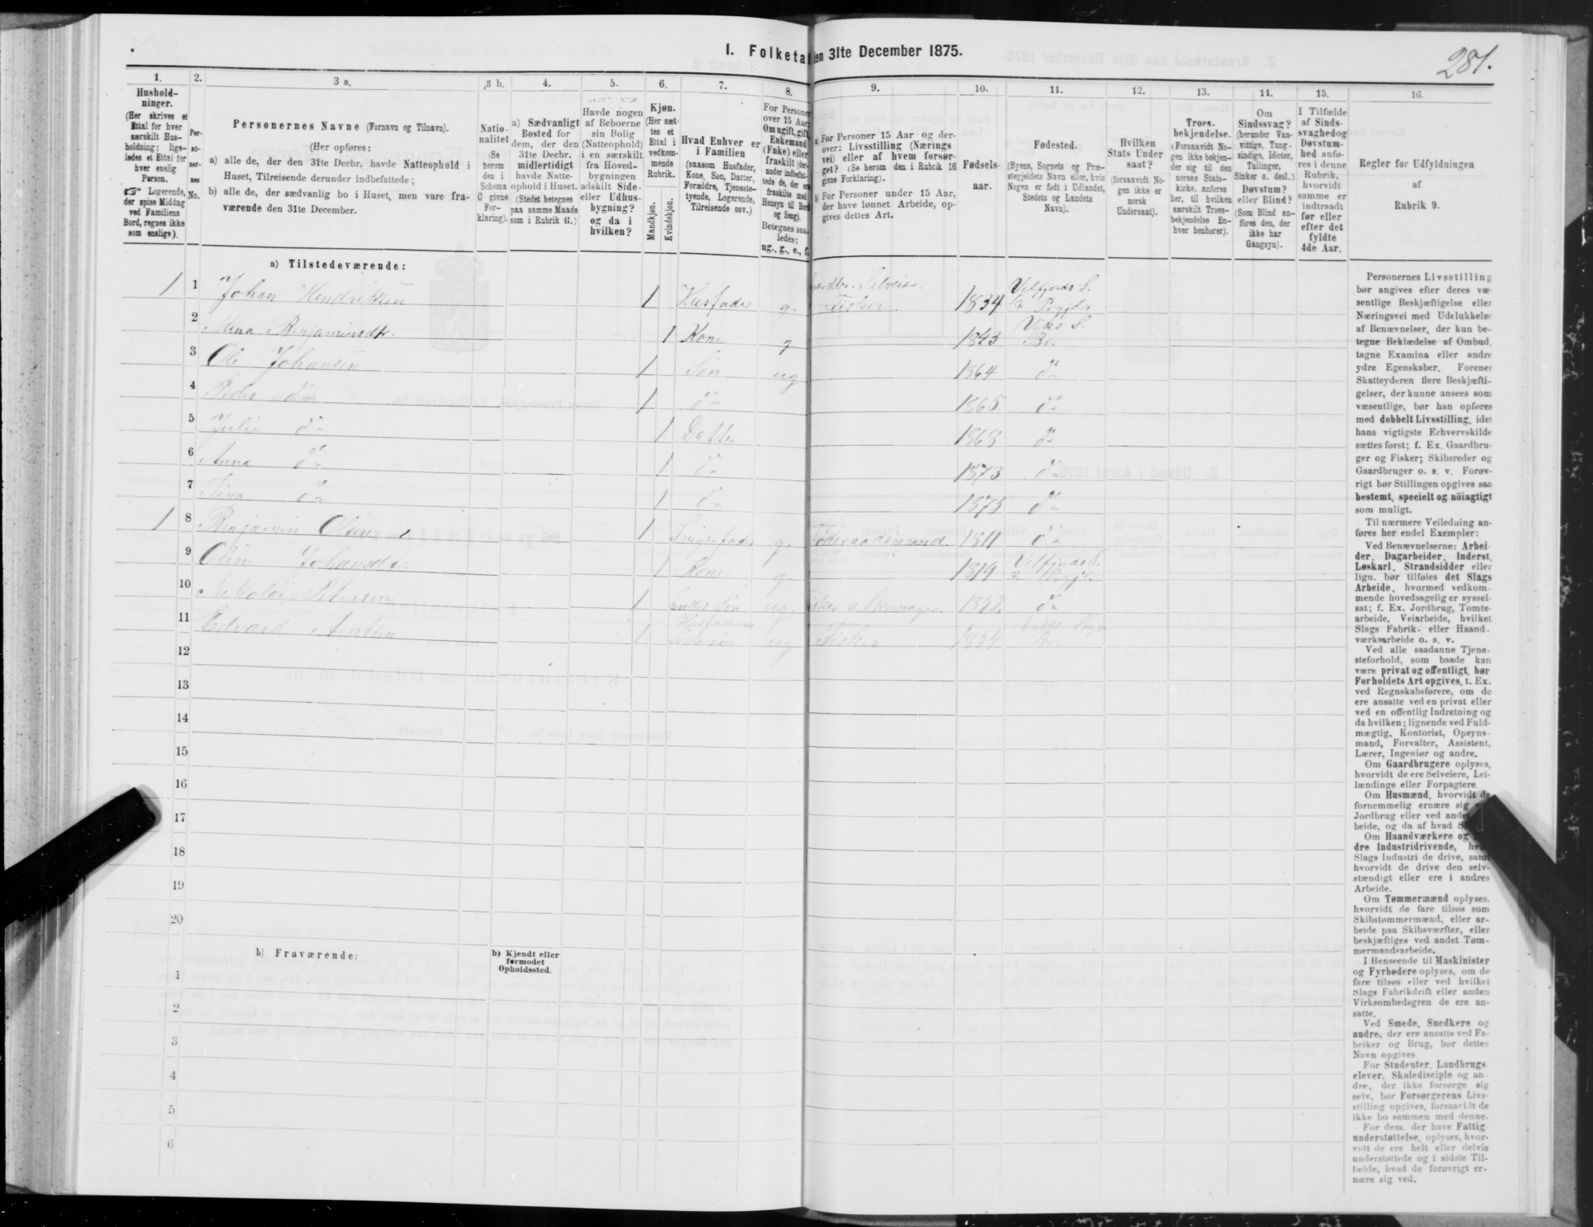 I. Folketa en 31te December 1875.
281.
1.
Hushold-
ninger.
(Her skrives et
Ettal for hver
særskilt Hus-
holdning; lige-
ledes et Ettal for
hver enslig
Person.
Logerende,
der spise Middag
ved Familiens
Bord, regnes ikke
som enslige).
2.
Per-
so-
ner-
nes
No.
3 a.
Personernes Navne (Fornavn og Tilnavn).
(Her opføres:
a) alle de, der den 31te Decbr. havde Natteophold i
Huset, Tilreisende derunder indbefattede;
b) alle de, der sædvanlig bo i Huset, men vare fra-
værende den 31te December.
3 b.
Natio-
nalitet
(Se
herom
den i
Schema
C givne
For-
klaring).
4.
a) Sædvanligt
Bosted for
dem, der den
31te Decbr.
midlertidigt
havde Natte-
ophold i Huset.
(Stedet betegnes
paa samme Maade
som i Rubrik 11.)
5.
Havde nogen
af Beboerne
sin Bolig
(Natteophold)
i en særskilt
fra Hoved-
bygningen
adskilt Side-
eller Udhus-
bygning?
og da i
hvilken?
6.
Kjøn.
(Her sæt-
tes et
Ettal i
vedkom-
mende
Rubrik.
Mandkjøn.
Kvindekjøn.
7.
Hvad Enhver er
i Familien
(saasom Husfader,
Kone, Søn, Datter,
Forældre, Tjeneste-
tyende, Logerende,
Tilreisende osv.)
8.
For Personer
over 15 Aar:
Om ugift, gift,
Enkemand
(Enke) eller
fraskilt
Betegnes saa-
ledes:
ug., g., e., f.
9.
a) For Personer 15 Aar og der-
over: Livsstilling (Nærings-
vei) eller af hvem forsør-
get? (Se herom den i Rubrik 16
givne Forklaring).
b) For Personer under 15 Aar,
der have lønnet Arbeide, op-
gives dettes Art.
10.
Fødsels-
aar.
11.
Fødested.
(Byens, Sognets og Præ-
stegjeldets Navn eller, hvis
Nogen er født i Udlandet,
Stedets og Landets
Navn).
12.
Hvilken
Stats Under
saat?
(forsaavidt No-
gen ikke er
norsk
Undersaat).
13.
Troes-
bekjendelse.
(Forsaavidt No-
gen ikke bekjen-
der sig til den
norske Stats-
kirke, anføres
her, til hvilken
særskilt Troes-
bekjendelse En-
hver henhører).
14.
Om
Sindssvag?
(herunder Van-
vittige, Tung-
sindige, Idioter,
Tullinger,
Sinker o. desl.)
Døvstum?
eller Blind?
(Som Blind an-
føres den, der
ikke har
Gangsyn).
15.
I Tilfælde
af Sinds-
svaghed og
Døvstum-
hed anfø-
res i denne
Rubrik,
hvorvidt
samme er
indtraadt
før eller
efter det
fyldte
4de Aar.
16.
Regler før Udfyldningen
af
Rubrik 9.
a) Tilstedeværende:
1 1 Johan Hendriksen 1 Husfader g. Fisker 1834 Velfjords S.
2 Mina Benjaminsdtr. 1 Kone g 1843
3 Ole Johansen 1 Søn ug 1864 do
4 Peder do 1 do 1865 do
5 Julie do 1 Datter 1868 do
6 Anna do 1 do 1873 do
7 do 1 do 1875 do
1 8 Benjamin Olsen 1 g. Føderaadsmand 1811 do
9 Johansdtr. 1 Kone g. 1819 Velfjords S.
10 Nikolai Petersen 1 Søn ug. 1852 do
11 Edvard 1 ug Fisker 1854
12
13
14
15
16
17
18
19
20
b) Fraværende:
b) Kjendt eller
formodet
Opholdssted.
1
2
3
4
5
6
Personernes Livsstilling
bør angives efter deres væ-
sentlige Beskjæftigelse eller
Næringsvei med Udelukkelse
af Benævnelser, der kun be-
tegne Beklædelse af Ombud,
tagne Examina eller andre
ydre Egenskaber. Forener
Skatteyderen flere Beskjæfti-
gelser, der kunne ansees som
væsentlige, bør han opføres
med dobbelt Livsstilling, idet
hans vigtigste Erhvervskilde
sættes først; f. Ex. Gaardbru-
ger og Fisker; Skibsreder og
Gaardbruger o. s. v. Forøv-
rigt bør Stillingen opgives saa
bestemt, specielt og nøiagtigt
som muligt.
Til nærmere Veiledning an-
føres her endel Exempler:
Ved Benævnelserne: Arbei-
der, Dagarbeider, Inderst,
Løskarl, Strandsidder eller
lign. bør tilføies det Slags
Arbeide, hvormed vedkom-
mende hovedsagelig er syssel-
sat; f. Ex. Jordbrug, Tomte-
arbeide, Veiarbeide, hvilket
Slags Fabrik- eller Haand-
værksarbeide o. s. v.
Ved alle saadanne Tjene-
steforhold, som baade kan
være privat og offentligt, bør
Forholdets Art opgives, t. Ex.
ved Regnskabsførere, om de
ere ansatte ved en privat eller
ved en offentlig Indretning og
da hvilken; lignende ved Fuld-
mægtig, Kontorist, Opsyns-
mand, Forvalter, Assistent,
Lærer, Ingeniør og andre.
Om Gaardbrugere oplyses,
hvorvidt de ere Selveiere, Lei-
lændinge eller Forpagtere.
Om Husmænd, hvorvidt de
fornemmelig ernære sig
Jordbrug eller ved
beide, og da af hvad
Om Haandværkere og
dre Industridrivende,
Slags Industri de drive, samt
hvorvidt de drive den selv-
stændigt eller ere i andres
Arbeide.
Om Tømmermænd oplyses,
hvorvidt de fare tilsøs som
Skibstømmermænd, eller ar-
beide paa Skibsværfter, eller
beskjæftiges ved andet Tøm-
mermandsarbeide.
I Henseende til Maskinister
og Fyrbødere oplyses, om de
fare tilsøs eller ved hvilket
Slags Fabrikdrift eller anden
Virksomhedsgren de ere an-
satte.
Ved Smede, Snedkere og
andre, der ere ansatte ved Fa-
briker og Brug, bør dettes
Navn opgives.
For Studenter, Landbrugs-
elever, Skoledisciple og an-
dre, der ikke forsørge sig
selv, bør Forsørgerens Livs-
stilling opgives, forsaavidt de
ikke bo sammen med denne.
For dem, der have Fattig-
understøttelse, oplyses, hvor-
vidt de ere helt eller delvis
understøttede og i sidste Til-
fælde, hvad de forøvrigt er-
nære sig ved.